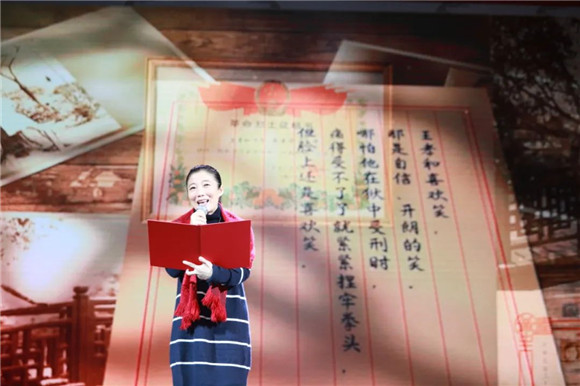 王孝和喜欢笑，
那是自信、开朗的笑。
哪怕他在狱中受刑时，
痛得受不了了就紧紧捏牢拳头，
但脸上还是喜欢笑。
革命烈士证明书